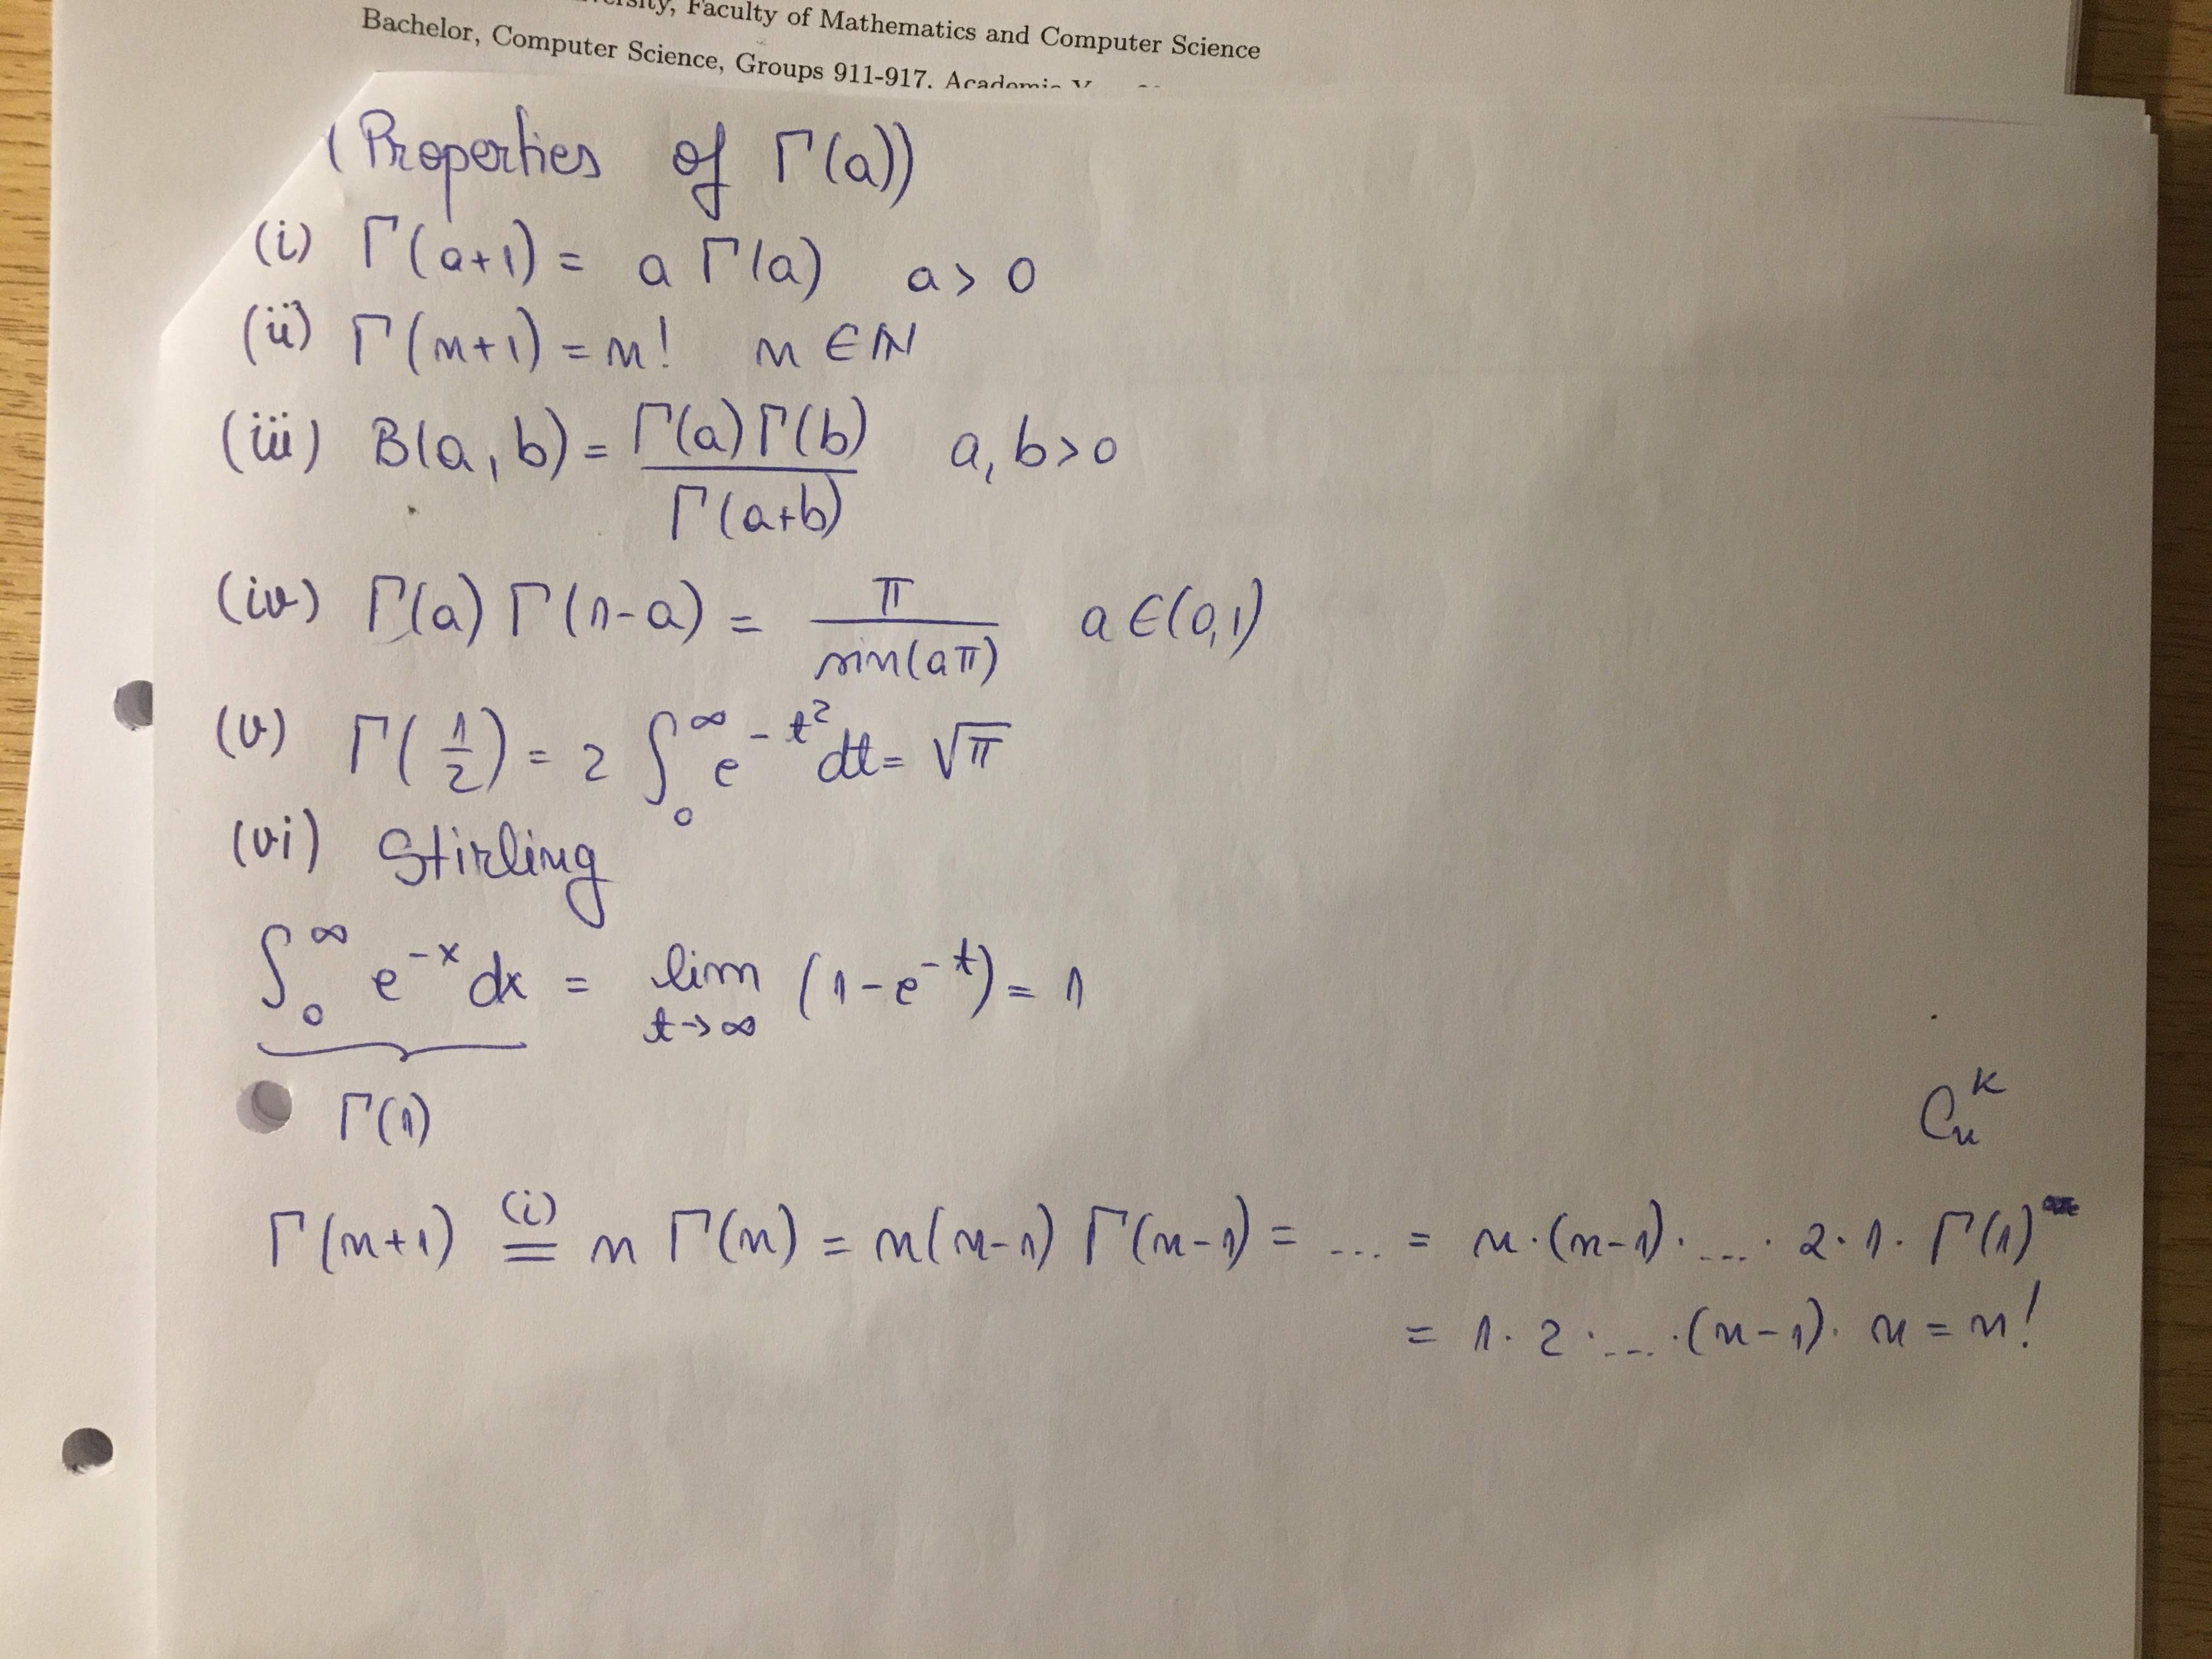 Faculty of Mathematics and Computer Science
Bachelor, Computer Science, Groups 911-917.
(Properties of Γ(a))
(i) Γ(a+1) = a Γ(a) a > 0
(ii) Γ(n+1) = n! n ∈ N
(iii) B(a, b) = Γ(a)Γ(b) / Γ(a+b) a, b > 0
(iv) Γ(a) Γ(1-a) = π / sin(aπ) a ∈ (0,1)
(v) Γ(1/2) = 2 ∫₀^∞ e^(-t²) dt = √π
(vi) Stirling
∫₀^∞ e^(-x) dx = lim t→∞ (1 - e^(-t)) = 1
Γ(1)
C_n^k
Γ(n+1) (i)= n Γ(n) = n(n-1) Γ(n-1) = ... = n·(n-1)· ... · 2·1· Γ(1)
= 1· 2· ... ·(n-1)· n = n!